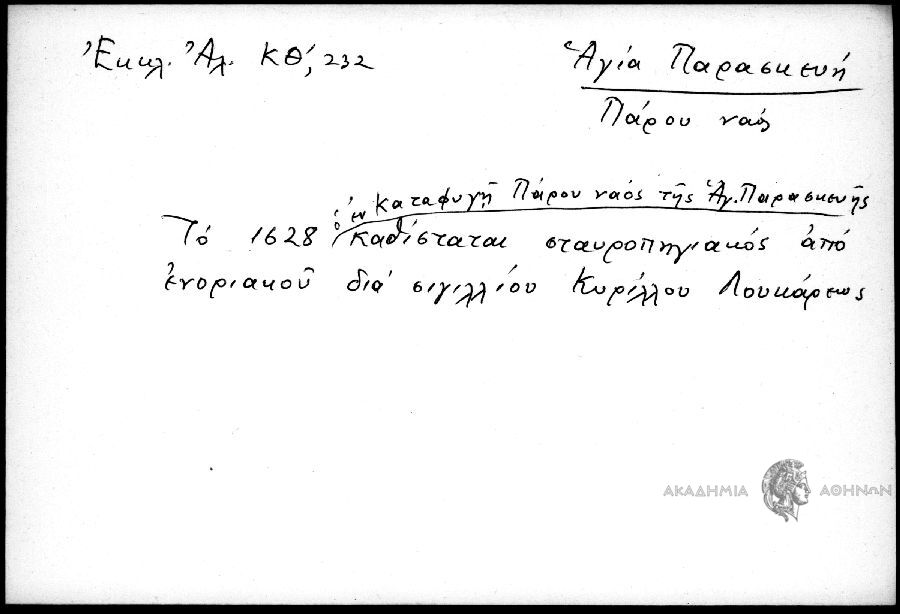 Ἐκκλ. Ἀλ. ΚΘ΄, 232
Ἁγία Παρασκευή
Πάρου ναός
ὁ ἐν Καταφυγῇ Πάρου ναός τῆς Ἁγ. Παρασκευῆς
Τό 1628 καθίσταται σταυροπηγιακός ἀπό
ἐνοριακοῦ διά σιγιλλίου Κυρίλλου Λουκάρεως
ΑΚΑΔΗΜΙΑ ΑΘΗΝΩΝ